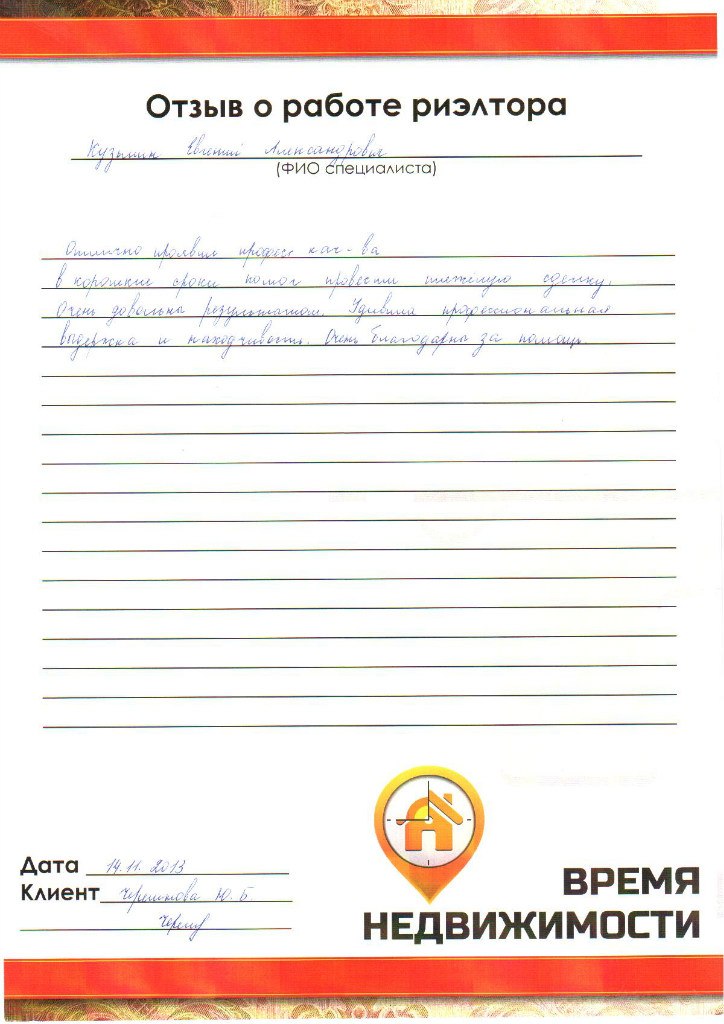 Отзыв о работе риэлтора
Кузьмин Евгений Александровья
(ФИО специалиста)
Отлично проявил професс кач-ва
в короткие сроки помог провести тяжелую сделку.
Очень довольны результатом. Удивила профессиональная
выдержка и находчивость. Очень благодарны за помощь.
Дата 14.11.2013
Клиент Ю.Б.
ВРЕМЯ
НЕДВИЖИМОСТИ